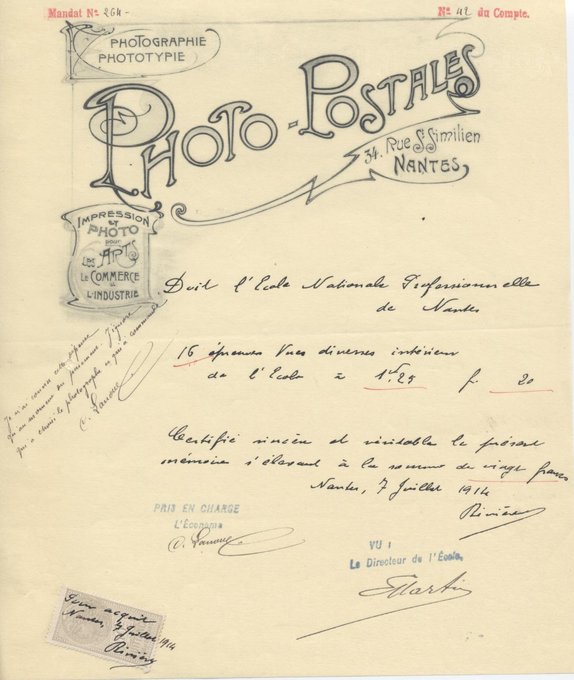 Mandat No 264
No 42 du Compte.
PHOTOGRAPHIE
PHOTOTYPIE
PHOTO-POSTALES
34. Rue St Similien
NANTES
IMPRESSION
et
PHOTO
pour
LES ARTS
LE COMMERCE
&
L'INDUSTRIE
Doit l'Ecole Nationale Professionnelle
de Nantes
16 épreuves Vues diverses intérieur
de l'Ecole à 1f25 f. 20
Je n'ai connu cette dépense
qu'au moment du paiement. J'ignore
qui a choisi le photographe et qui a commandé
C. Lanoue
Certifié sincère et véritable le présent
mémoire s'élevant à la somme de vingt francs
Nantes, 7 Juillet 1914
Rivière
PRIS EN CHARGE
L'Économe
C. Lanoue
VU :
Le Directeur de l'École,
Martin
Pour acquit
Nantes, 7 Juillet 1914
Rivière